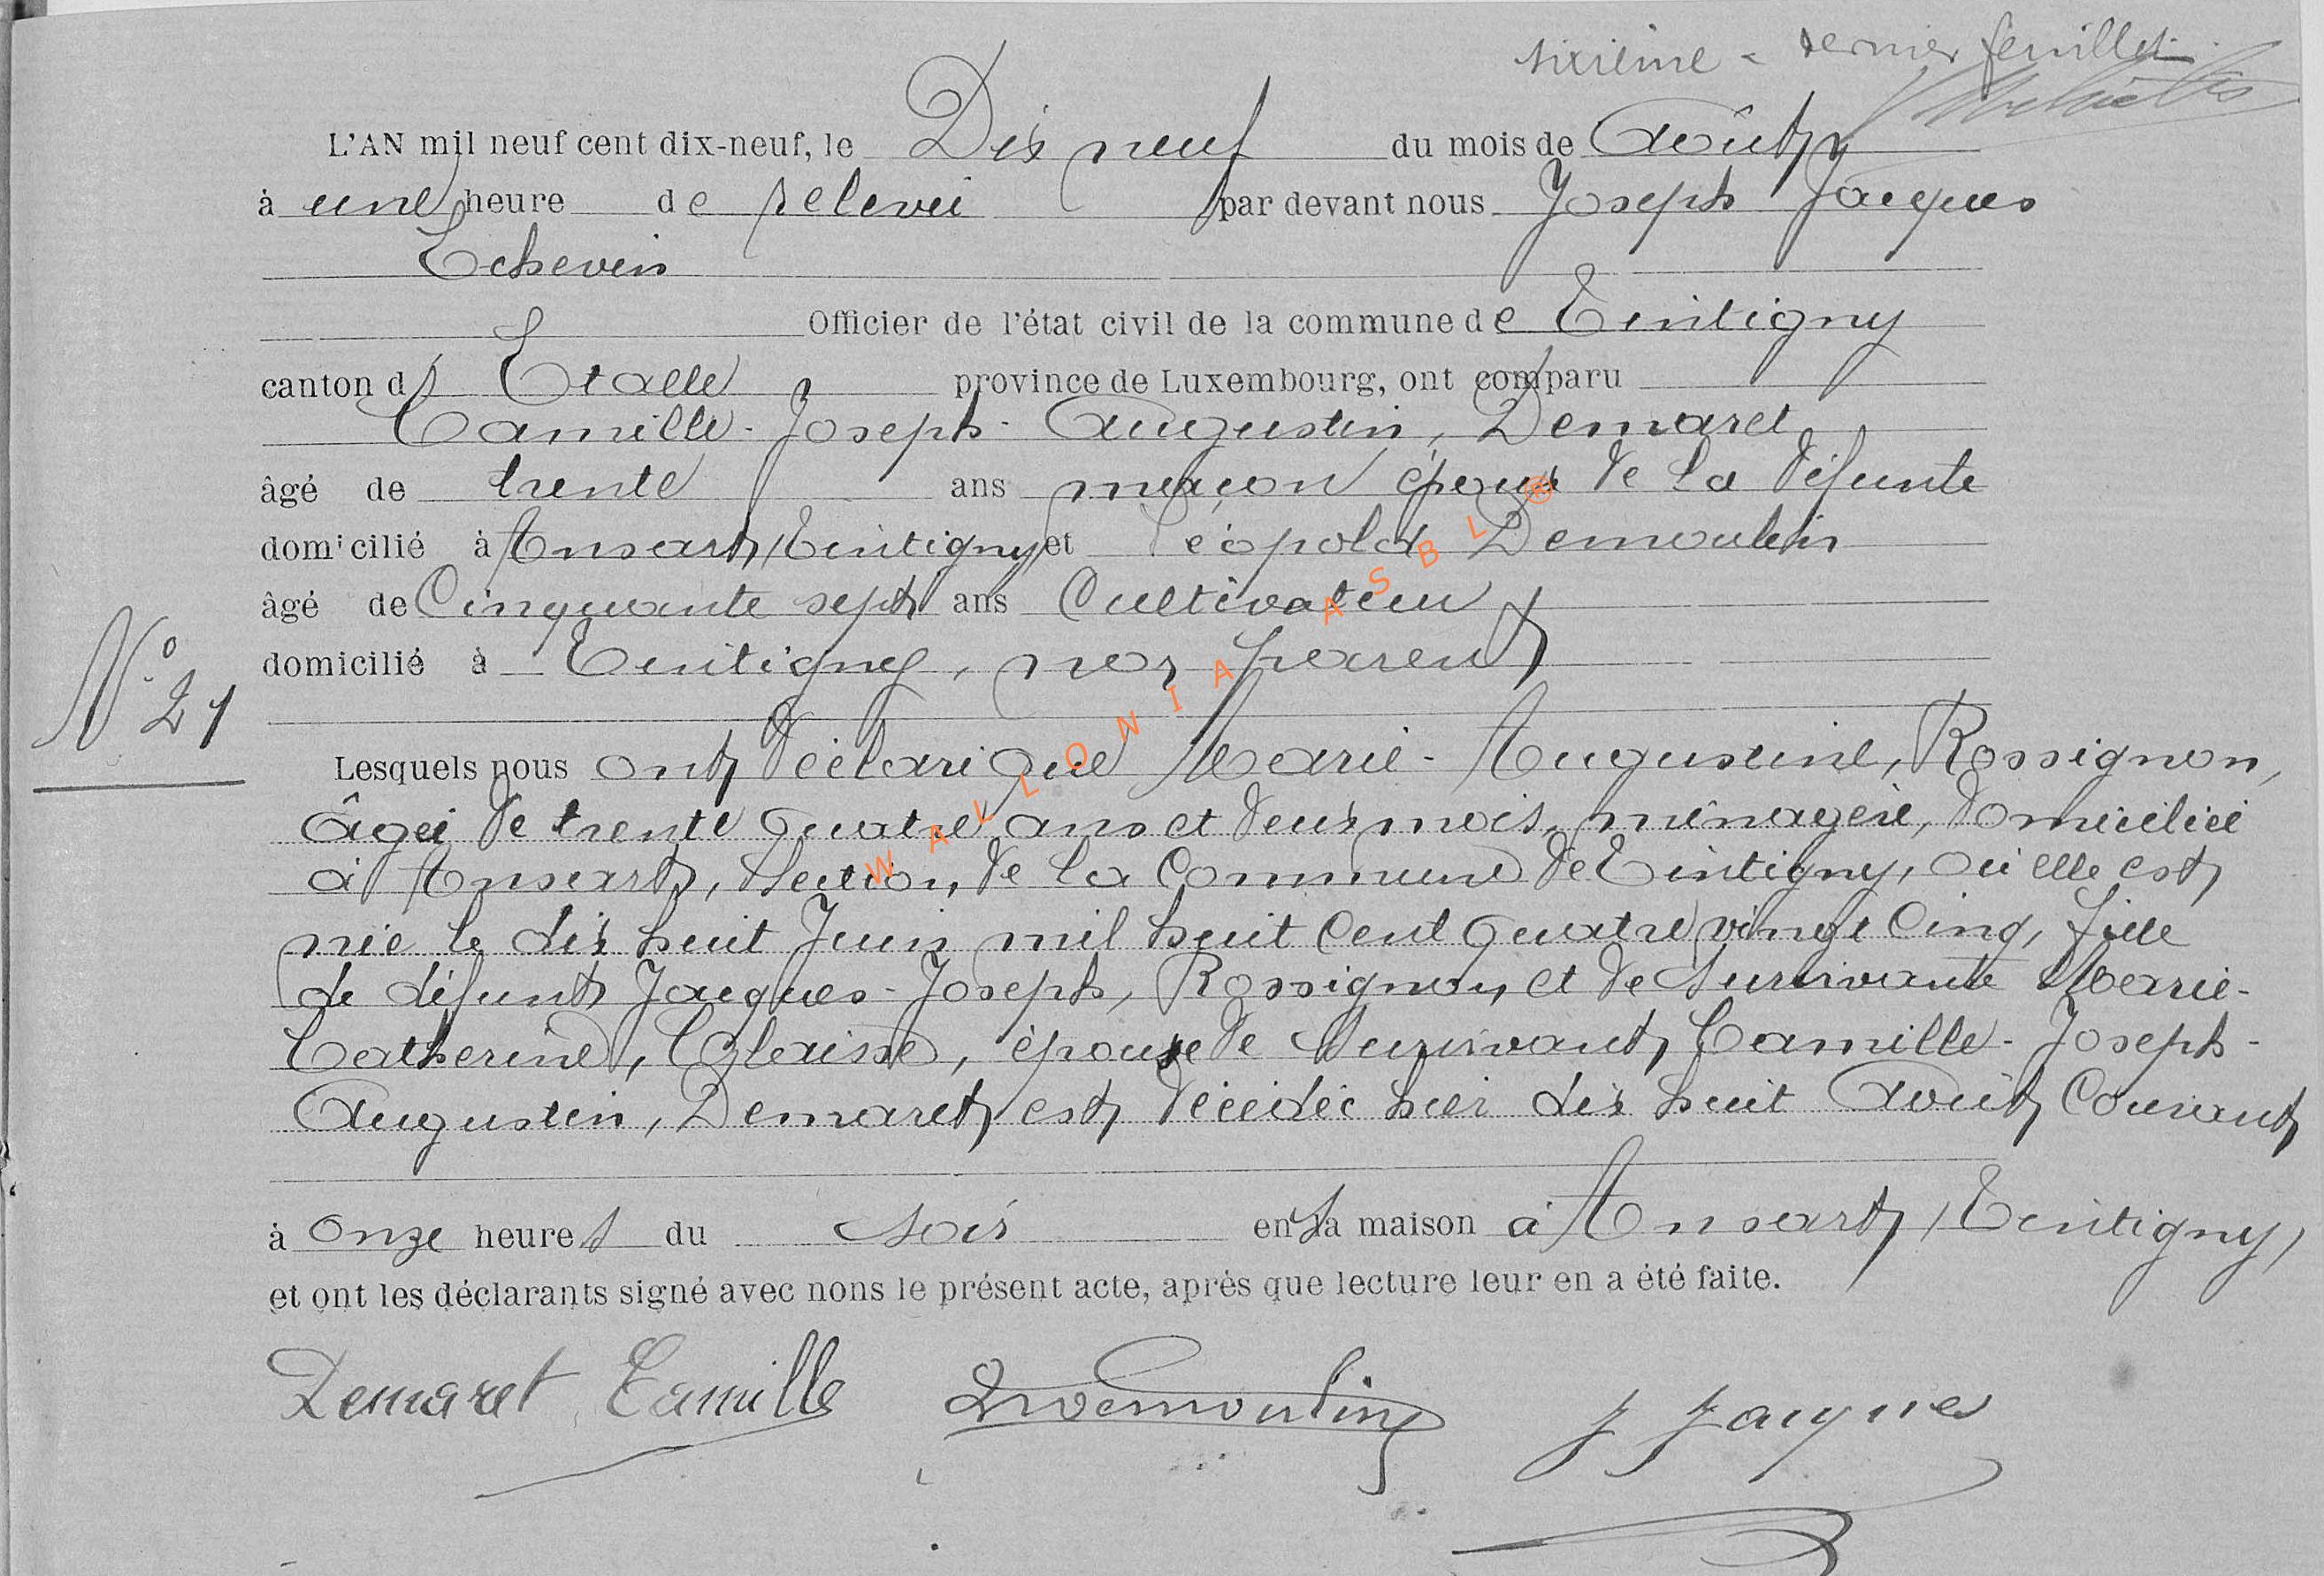 sixième - dernier feuillet.
L'AN mil neuf cent dix-neuf, le Dix neuf du mois de Août
à une heure de relevée par devant nous Joseph Jacques
Echevin
Officier de l'état civil de la commune de Tintigny
canton d' Etalle province de Luxembourg, ont comparu
Camille-Joseph-Augustin, Demaret
âgé de trente ans maçon époux de la défunte
domicilié à Ansart, Tintigny, et Léopold Demoulin
âgé de Cinquante sept ans Cultivateur
domicilié à Tintigny, non parent
N° 21
Lesquels nous ont déclaré que Marie-Augustine, Rossignon,
âgée de trente quatre ans et deux mois, ménagère, domiciliée
à Ansart, Section de la Commune de Tintigny, où elle est
née le dix huit Juin mil huit cent quatre vingt cinq, fille
de défunt Jacques-Joseph, Rossignon, et de Survivante Marie-
Catherine, Glaisse, épouse de Survivant, Camille-Joseph-
Augustin, Demaret, est décédée hier dix huit Août Courant
à onze heures du soir en sa maison à Ansart, Tintigny,
et ont les déclarants signé avec nons le présent acte, après que lecture leur en a été faite.
Demaret Camille Demoulin J Jacques
WALLONIA ASBL ®